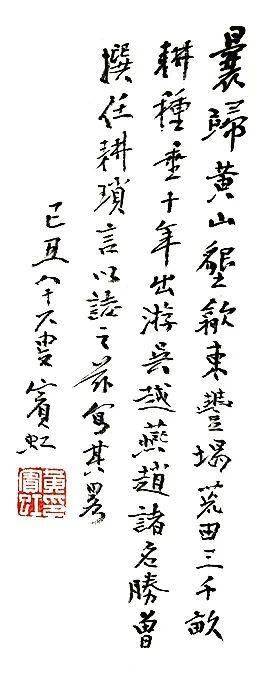 曩歸黃山墾歙東豐堨荒田三千畝
耕種垂十年出游吳越燕趙諸名勝曾
撰任耕瑣言以誌之茲寫其畧
己丑八十六叟賓虹